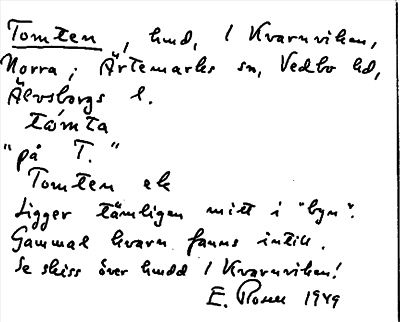 Tomten, hmd, 1 Kvarnviken,
Norra; Ärtemarks sn, Vedbo hd,
Älvsborgs l.
tåmta
"på T."
Tomten ek
Ligger tämligen mitt i "byn".
Gammal kvarn fanns intill.
Se skiss över hmdd 1 Kvarnviken!
E. Rosell 1949